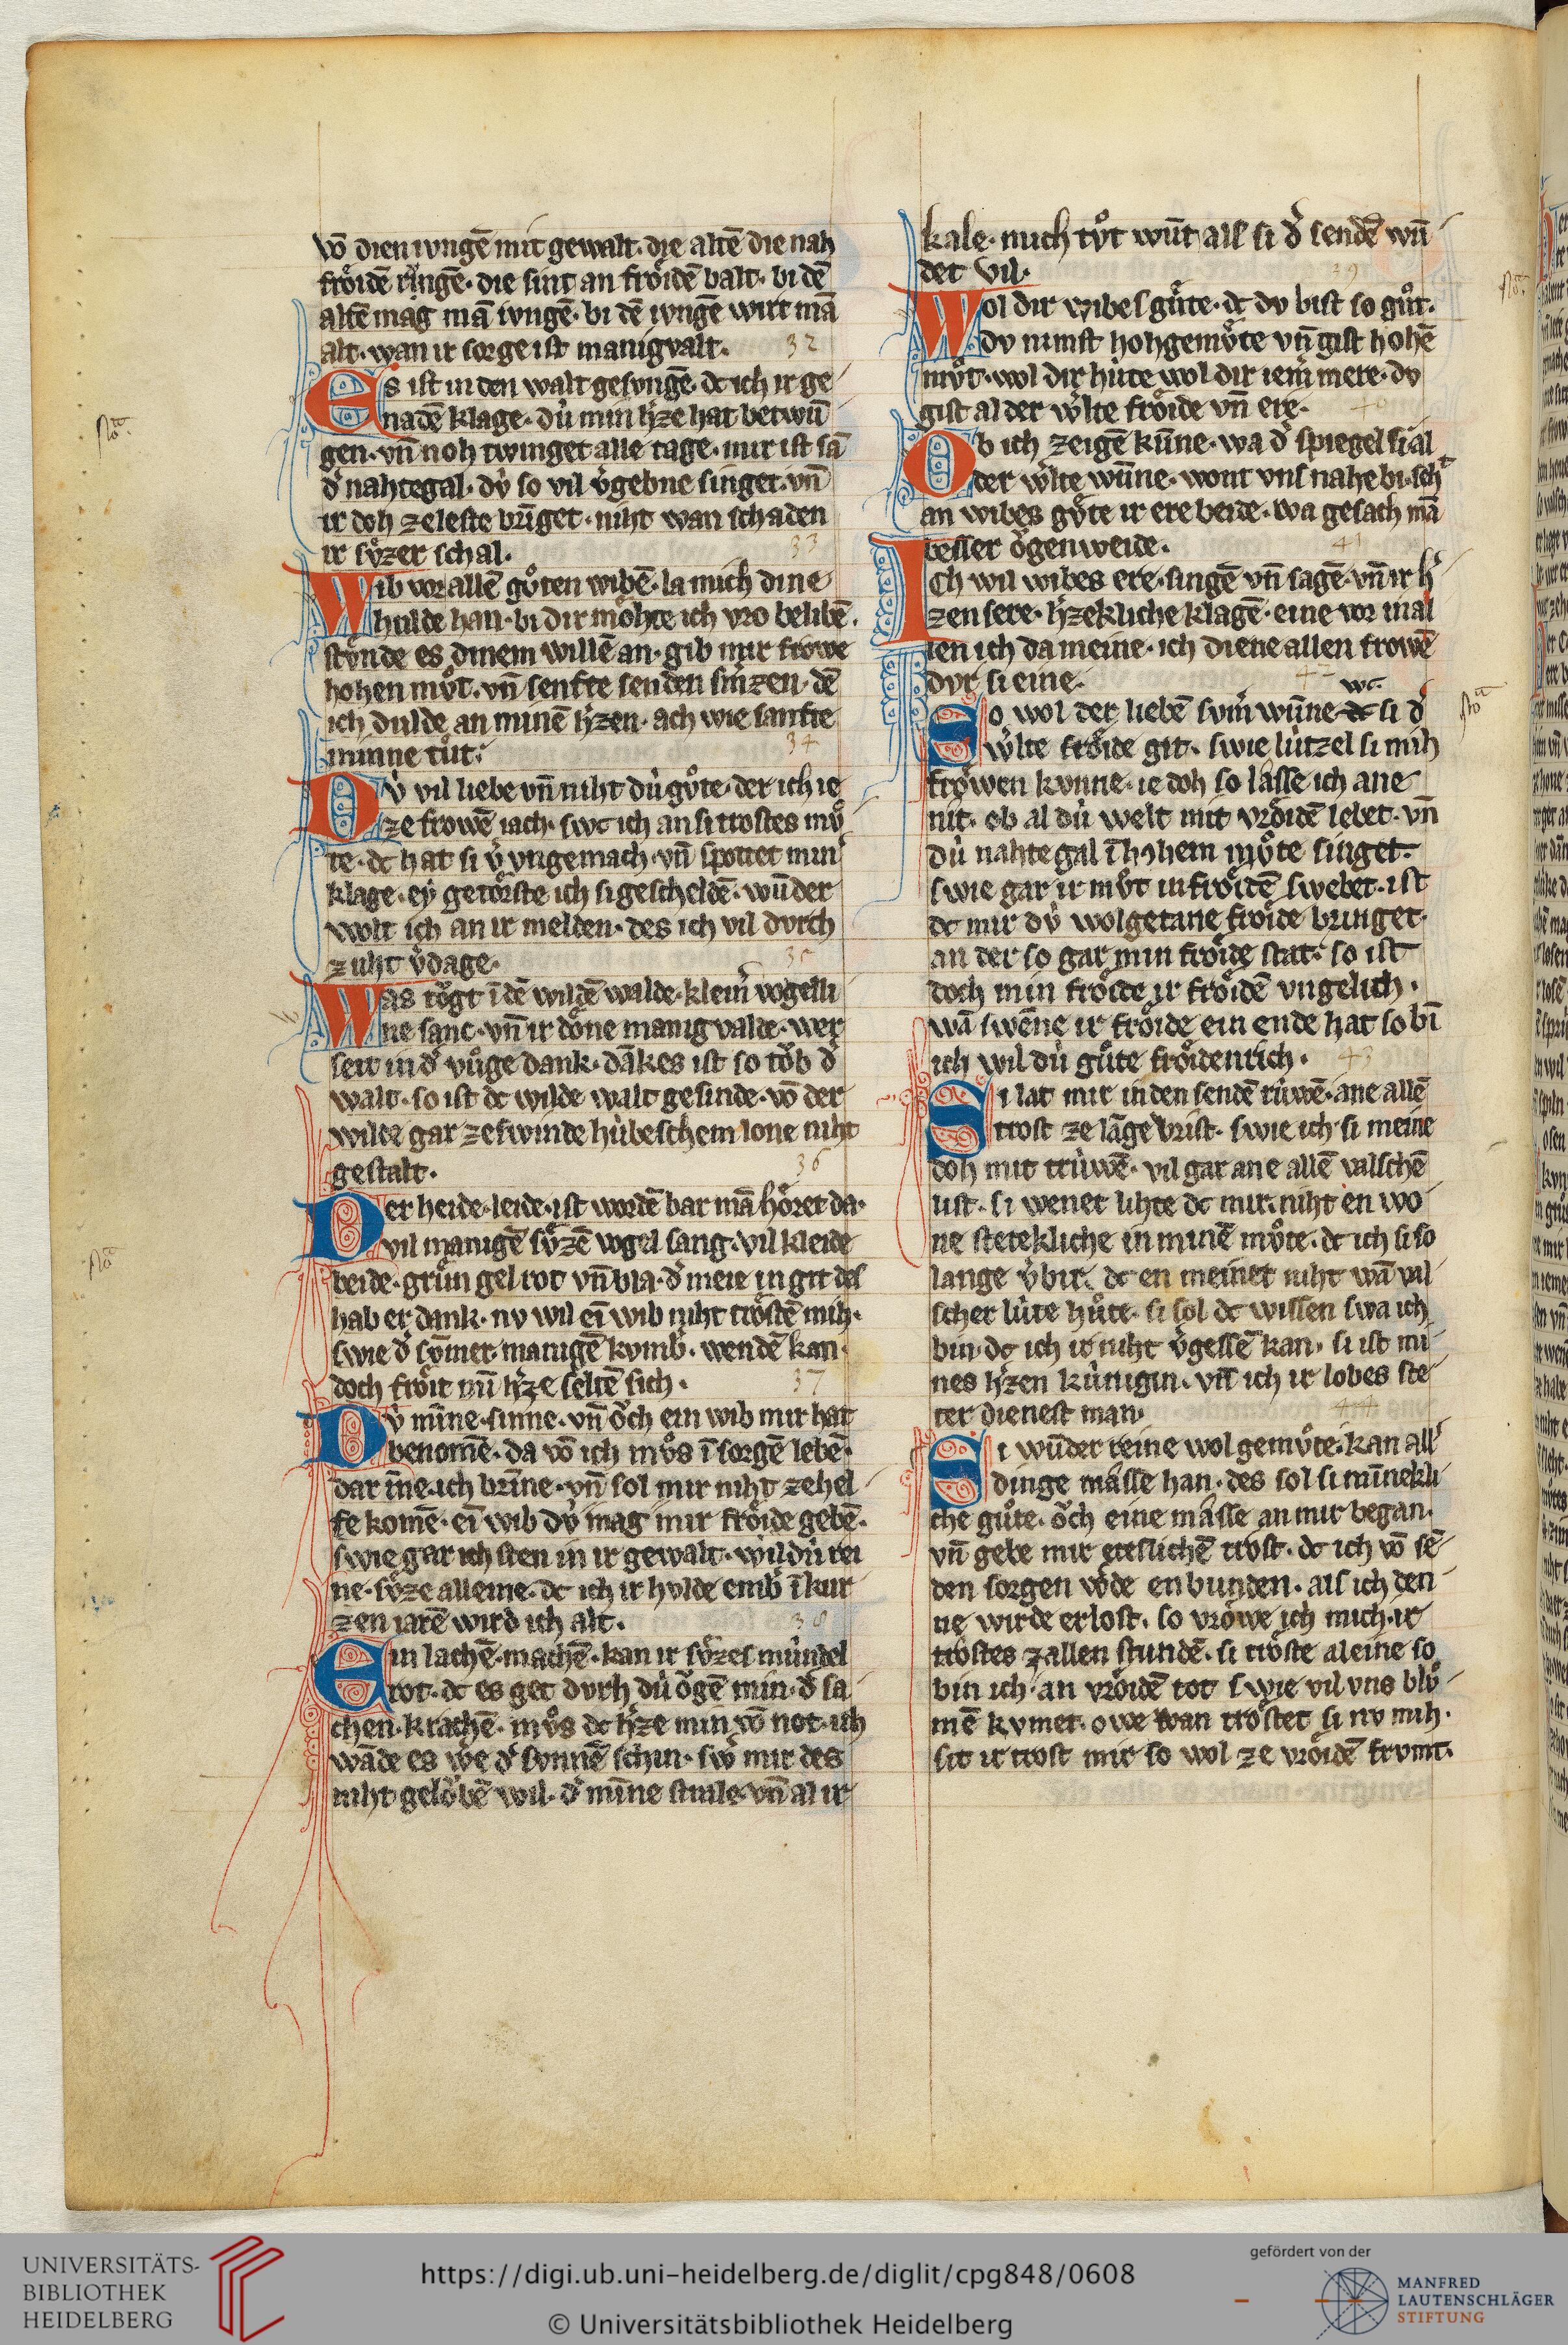 vō dien ivngē mit gewalt. die altē die nah
froͤidē ringē. die sint an froͤidē balt. bi dē
altē mag mā ivngē. bi dē ivngē wirt mā
alt. wan ir sorge ist manigvalt.
32
Es ist in den walt gesvngē. dc ich ir ge
nadē klage. dv́ min h'ze hat betwū
gen. vn̄ noh twinget alle tage. mir ist sā
d' nahtegal. dv́ so vil v'gebne singet. vn̄
ir doh ze leste bringet. niht wan schaden
ir sv̊zer schal.
33
Wib vor allē gv̊ten wibē. la mich dine
hulde han. bi dir moͤhte ich vro belibē.
stv̊nde es dinem willē an. gib mir frowe
hohen mv̊t. vn̄ senfte senden smerzen. dē
ich dulde an minē h'zen. ach wie sanfte
minne tůt.
34
Dv́ vil liebe vn̄ niht dv́ gv̊te. der ich ie
ze frowē iach. swc ich an si trostes mv̊
te. dc hat si v'r vngemach. vn̄ spottet min'
klage. ey getoͤrste ich si gescheldē. wūder
wolt ich an ir melden. des ich vil dvrch
zuht v'dage.
35
Was toͮgt ī dē wildē walde. klein' vogelli
ne sanc. vn̄ ir doͤne manig valde. wer
seit in d' vůge dank. dākes ist so toͮb d'
walt. so ist dc wilde walt gesinde. vō der
wilde gar ze swinde hv́beschem lone niht
gestalt.
36
Der heide. leide. ist wordē bar mā hoͤret da.
vil manigē sv̊zē vogel sang. vil kleide
beide. grůn gel rot vn̄ bla. d' meie in git des
hab er dank. nv wil eī wib niht troͤstē mih.
swie d' sv̄mer manigē kvmb'. wendē kan.
doch froͤit min h'ze seltē sich.
37
Dv́ mīne. sinne. vn̄ oͮch ein wib mir hat
benomē. da vō ich mv̊s ī sorgē lebē.
dar īne. ich brīne. vn̄ sol mir niht ze hel
fe komē. eī wib dv́ mag mir froͤide gebē.
swie gar ich sten in ir gewalt. wil dv́ rei
ne. sv̊ze alleine. dc ich ir hvlde emb'r ī kur
zen iarē wird ich alt.
38
Ein lachē. machē. kan ir sv̊zes mv́ndel
rot. dc es get dvrh dv́ oͮgē min. d' sa
chen. krachē. mv̊s dc h'ze min vō not. ich
wāde es we d' svnnē schin. sw' mir des
niht geloͮbē wil. d' mīne strale. vn̄ al ir
kale. mich tv̊t wūt als si d' sendē wū
det vil.
39
Wol dir wibes gůte. dc dv bist so gůt.
dv nimst hohgemv̊te vn̄ gist hohē
mv̊t. wol dir hv́te wol dir iem' mere. dv
gist al der w'lte froͤide vn̄ ere.
40
Ob ich zeigē kūne. wa d' spiegel si. al
der w'lte wūne. wont vns nahe bi. sch
an wibes gv̊te ir ere beide. wa gesach mā
besser oͮgenweide.
41
Ich wil wibes ere. singē vn̄ sagē. vn̄ ir h'
zen sere. h'zekliche klagē. eine vor in al
len ich da meine. ich diene allen frowē
dvr si eine.
42
So wol der liebē svm' wūne dc si d'
wc.
w'lte froͤide git. swie lv́tzel si mih
froͤwen kvnne. ie doh so lasse ich ane
nit. ob al dv́ welt mit vroͤidē lebet. vn̄
dv́ nahtegal ī hohem mv̊te singet.
swie gar ir mv̊t in froͤidē swebet. ist
dc mir dv́ wolgetane froͤide bringet.
an der so gar min froͤide stat. so ist
doch min froͤide ir froͤidē vngelich.
wā swēne ir froͤide ein ende hat so bī
ich wil dv́ gůte froͤidenrich.
43
Si lat mir in den sendē rv́wē. ane allē
trost ze lāge vrist. swie ich si meine
doh mit trv́wē. vil gar ane allē valschē
list. si wenet lihte dc mir. niht en wo
ne stetekliche in minē mv̊te. dc ich si so
lange v'bir. dc en meinet niht wā val
scher lv́te hůte. si sol dc wissen swa ich
bin. dc ich ir niht v'gessē kan. si ist mi
nes h'zen kv́nigin. vn̄ ich ir lobes ste
ter dienest man.
44
Si wūder reine wol gemv̊te. kan all'
dinge māsse han. des sol si mīnekli
che gůte. oͮch eine māsse an mir began.
vn̄ gebe mir etslichē trost. dc ich vō sē
den sorgen w'de enbunden. als ich den
ne wirde erlost. so vroͤwe ich mich. ir
trostes zallen stundē. si troͤste aleine so
bin ich an vroͤidē tot swie vil vns blv̊
mē kvmet. owe wan troͤstet si nv mih.
sit ir trost mir so wol ze vroͤidē frvmt.
UNIVERSITÄTS-
BIBLIOTHEK
HEIDELBERG
https://digi.ub.uni-heidelberg.de/diglit/cpg848/0608
© Universitätsbibliothek Heidelberg
gefördert von der
MANFRED
LAUTENSCHLÄGER
STIFTUNG